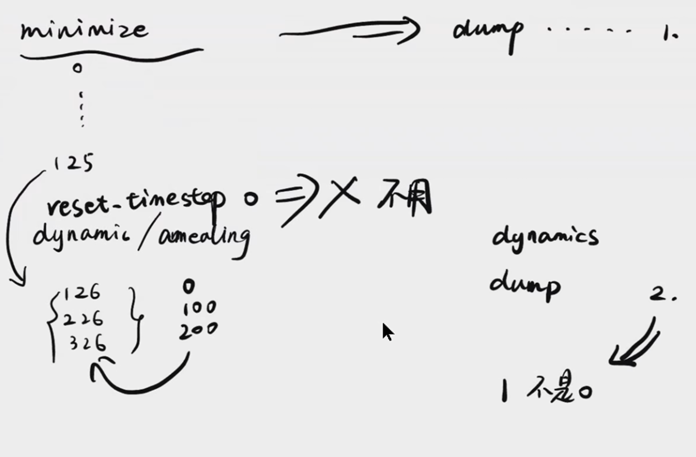 minimize
dump ······ 1.
0
125
reset-timestep 0 ⇒ X 不用
dynamic/annealing
126
226
326
0
100
200
dynamics
dump 2.
1 不是0